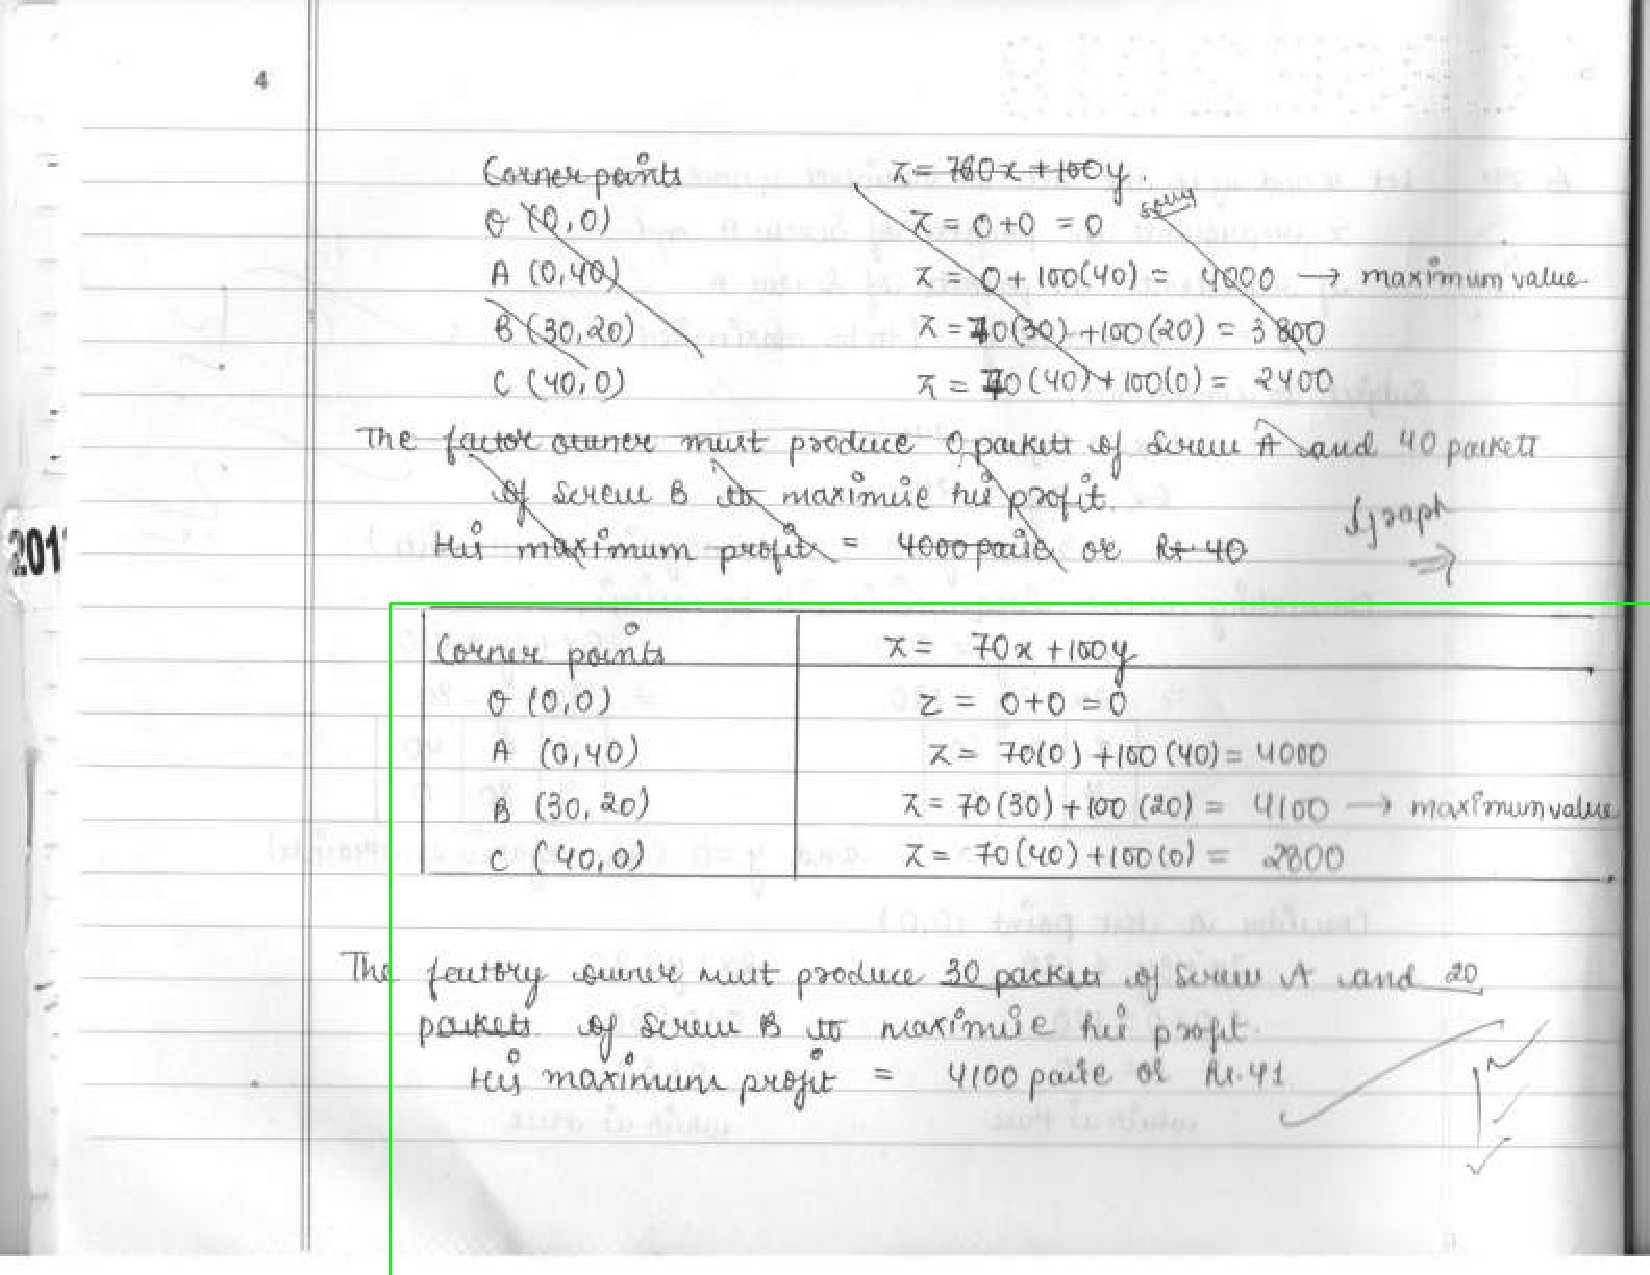 4
Corner points z = 760x + 100y.
O (0,0) z = 0+0 = 0 sorry
A (0,40) z = 0 + 100(40) = 4000 → maximum value
B (30,20) z = 70(30) + 100(20) = 3800
C (40,0) z = 70(40) + 100(0) = 2400
The factor owner must produce 0 packets of screw A and 40 packets
of screw B to maximise his profit.
His maximum profit = 4000 paise or Rs 40
graph
⇒
201
Corner points z = 70x + 100y
O (0,0) z = 0+0 = 0
A (0,40) z = 70(0) + 100(40) = 4000
B (30,20) z = 70(30) + 100(20) = 4100 → maximum value
C (40,0) z = 70(40) + 100(0) = 2800
The factory owner must produce 30 packets of screw A and 20
packets of screw B to maximise his profit.
His maximum profit = 4100 paise or Rs.41